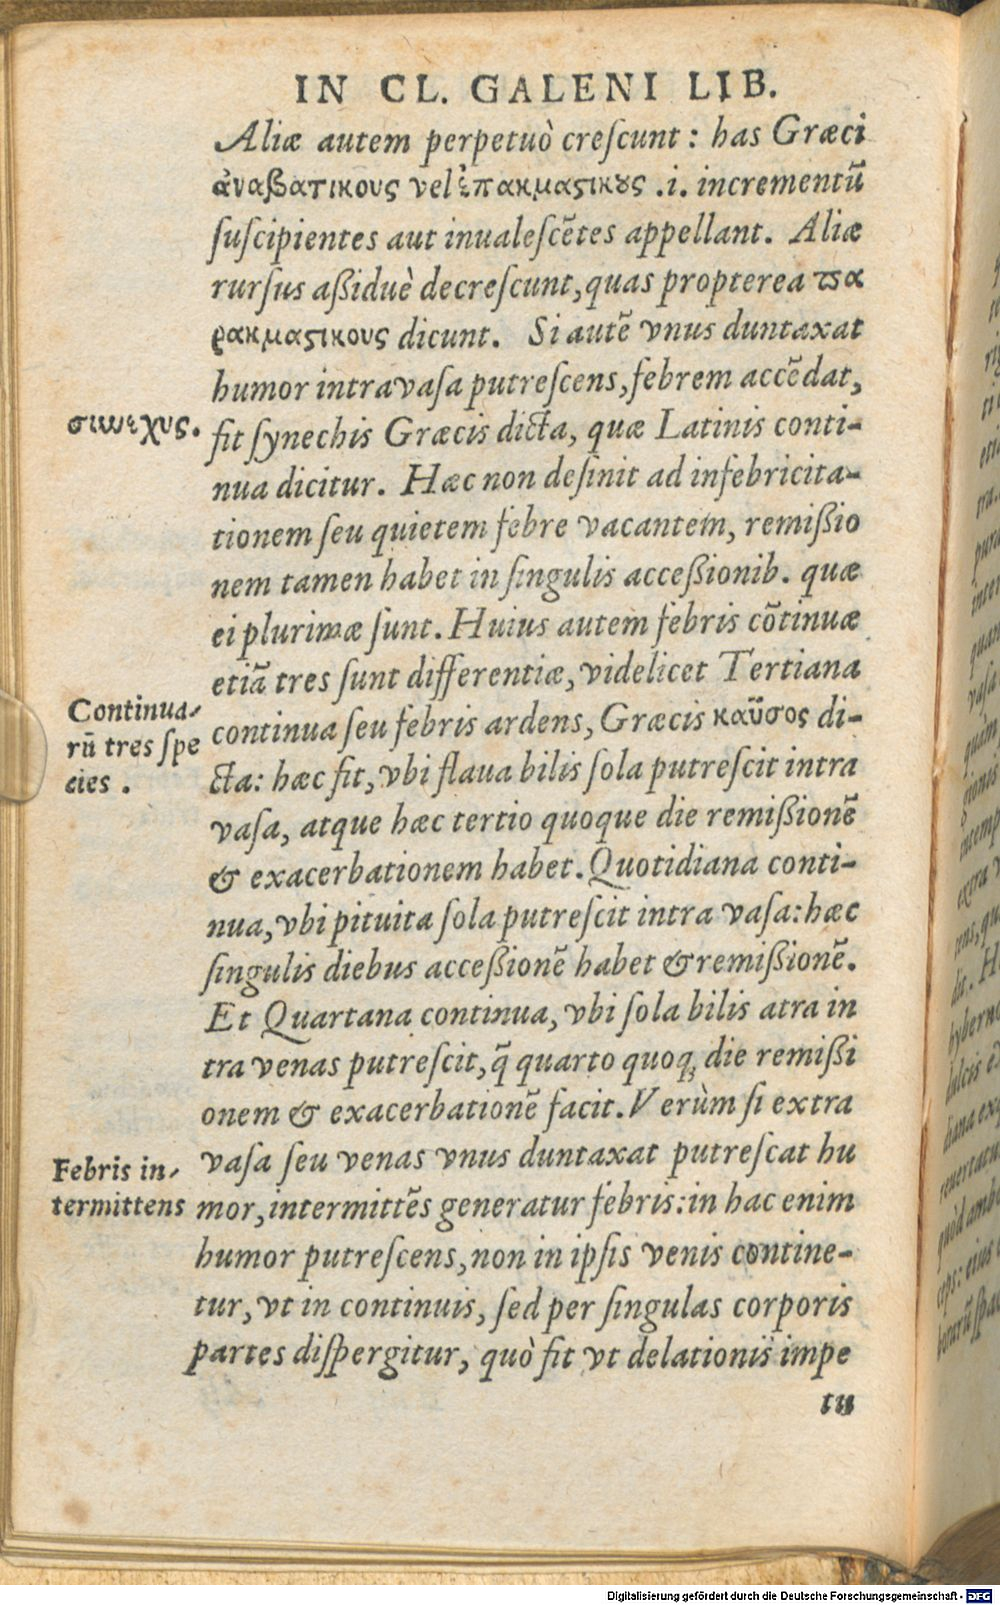 IN CL. GALENI LIB.
Aliæ autem perpetuò creſcunt : has Græci
ἀναβατικους vel ἐπακμαςικȣς .i. incrementũ
ſuſcipientes aut inualeſcẽtes appellant. Aliæ
rurſus aßiduè decreſcunt, quas propterea πα
ρακμαςικους dicunt. Si autẽ vnus duntaxat
humor intra vaſa putreſcens, febrem accẽdat,
συνεχὺς.
fit ſynechis Græcis dicta, quæ Latinis conti-
nua dicitur. Hæc non deſinit ad infebricita-
tionem ſeu quietem febre vacantem, remißio
nem tamen habet in ſingulis acceßionib. quæ
ei plurimæ ſunt. Huius autem febris cõtinuæ
etiã tres ſunt differentiæ, videlicet Tertiana
Continua-
rũ tres ſpe
cies .
continua ſeu febris ardens, Græcis καῦσος di-
cta: hæc fit, vbi flaua bilis ſola putreſcit intra
vaſa, atque hæc tertio quoque die remißionẽ
& exacerbationem habet. Quotidiana conti-
nua, vbi pituita ſola putreſcit intra vaſa: hæc
ſingulis diebus acceßionẽ habet & remißionẽ.
Et Quartana continua, vbi ſola bilis atra in
tra venas putreſcit, q̃ quarto quoq; die remißi
onem & exacerbationẽ facit. Verùm ſi extra
Febris in-
termittens
vaſa ſeu venas vnus duntaxat putreſcat hu
mor, intermittẽs generatur febris: in hac enim
humor putreſcens, non in ipſis venis contine-
tur, vt in continuis, ſed per ſingulas corporis
partes diſpergitur, quò fit vt delationis impe
tu
Digitalisierung gefördert durch die Deutsche Forschungsgemeinschaft - DFG